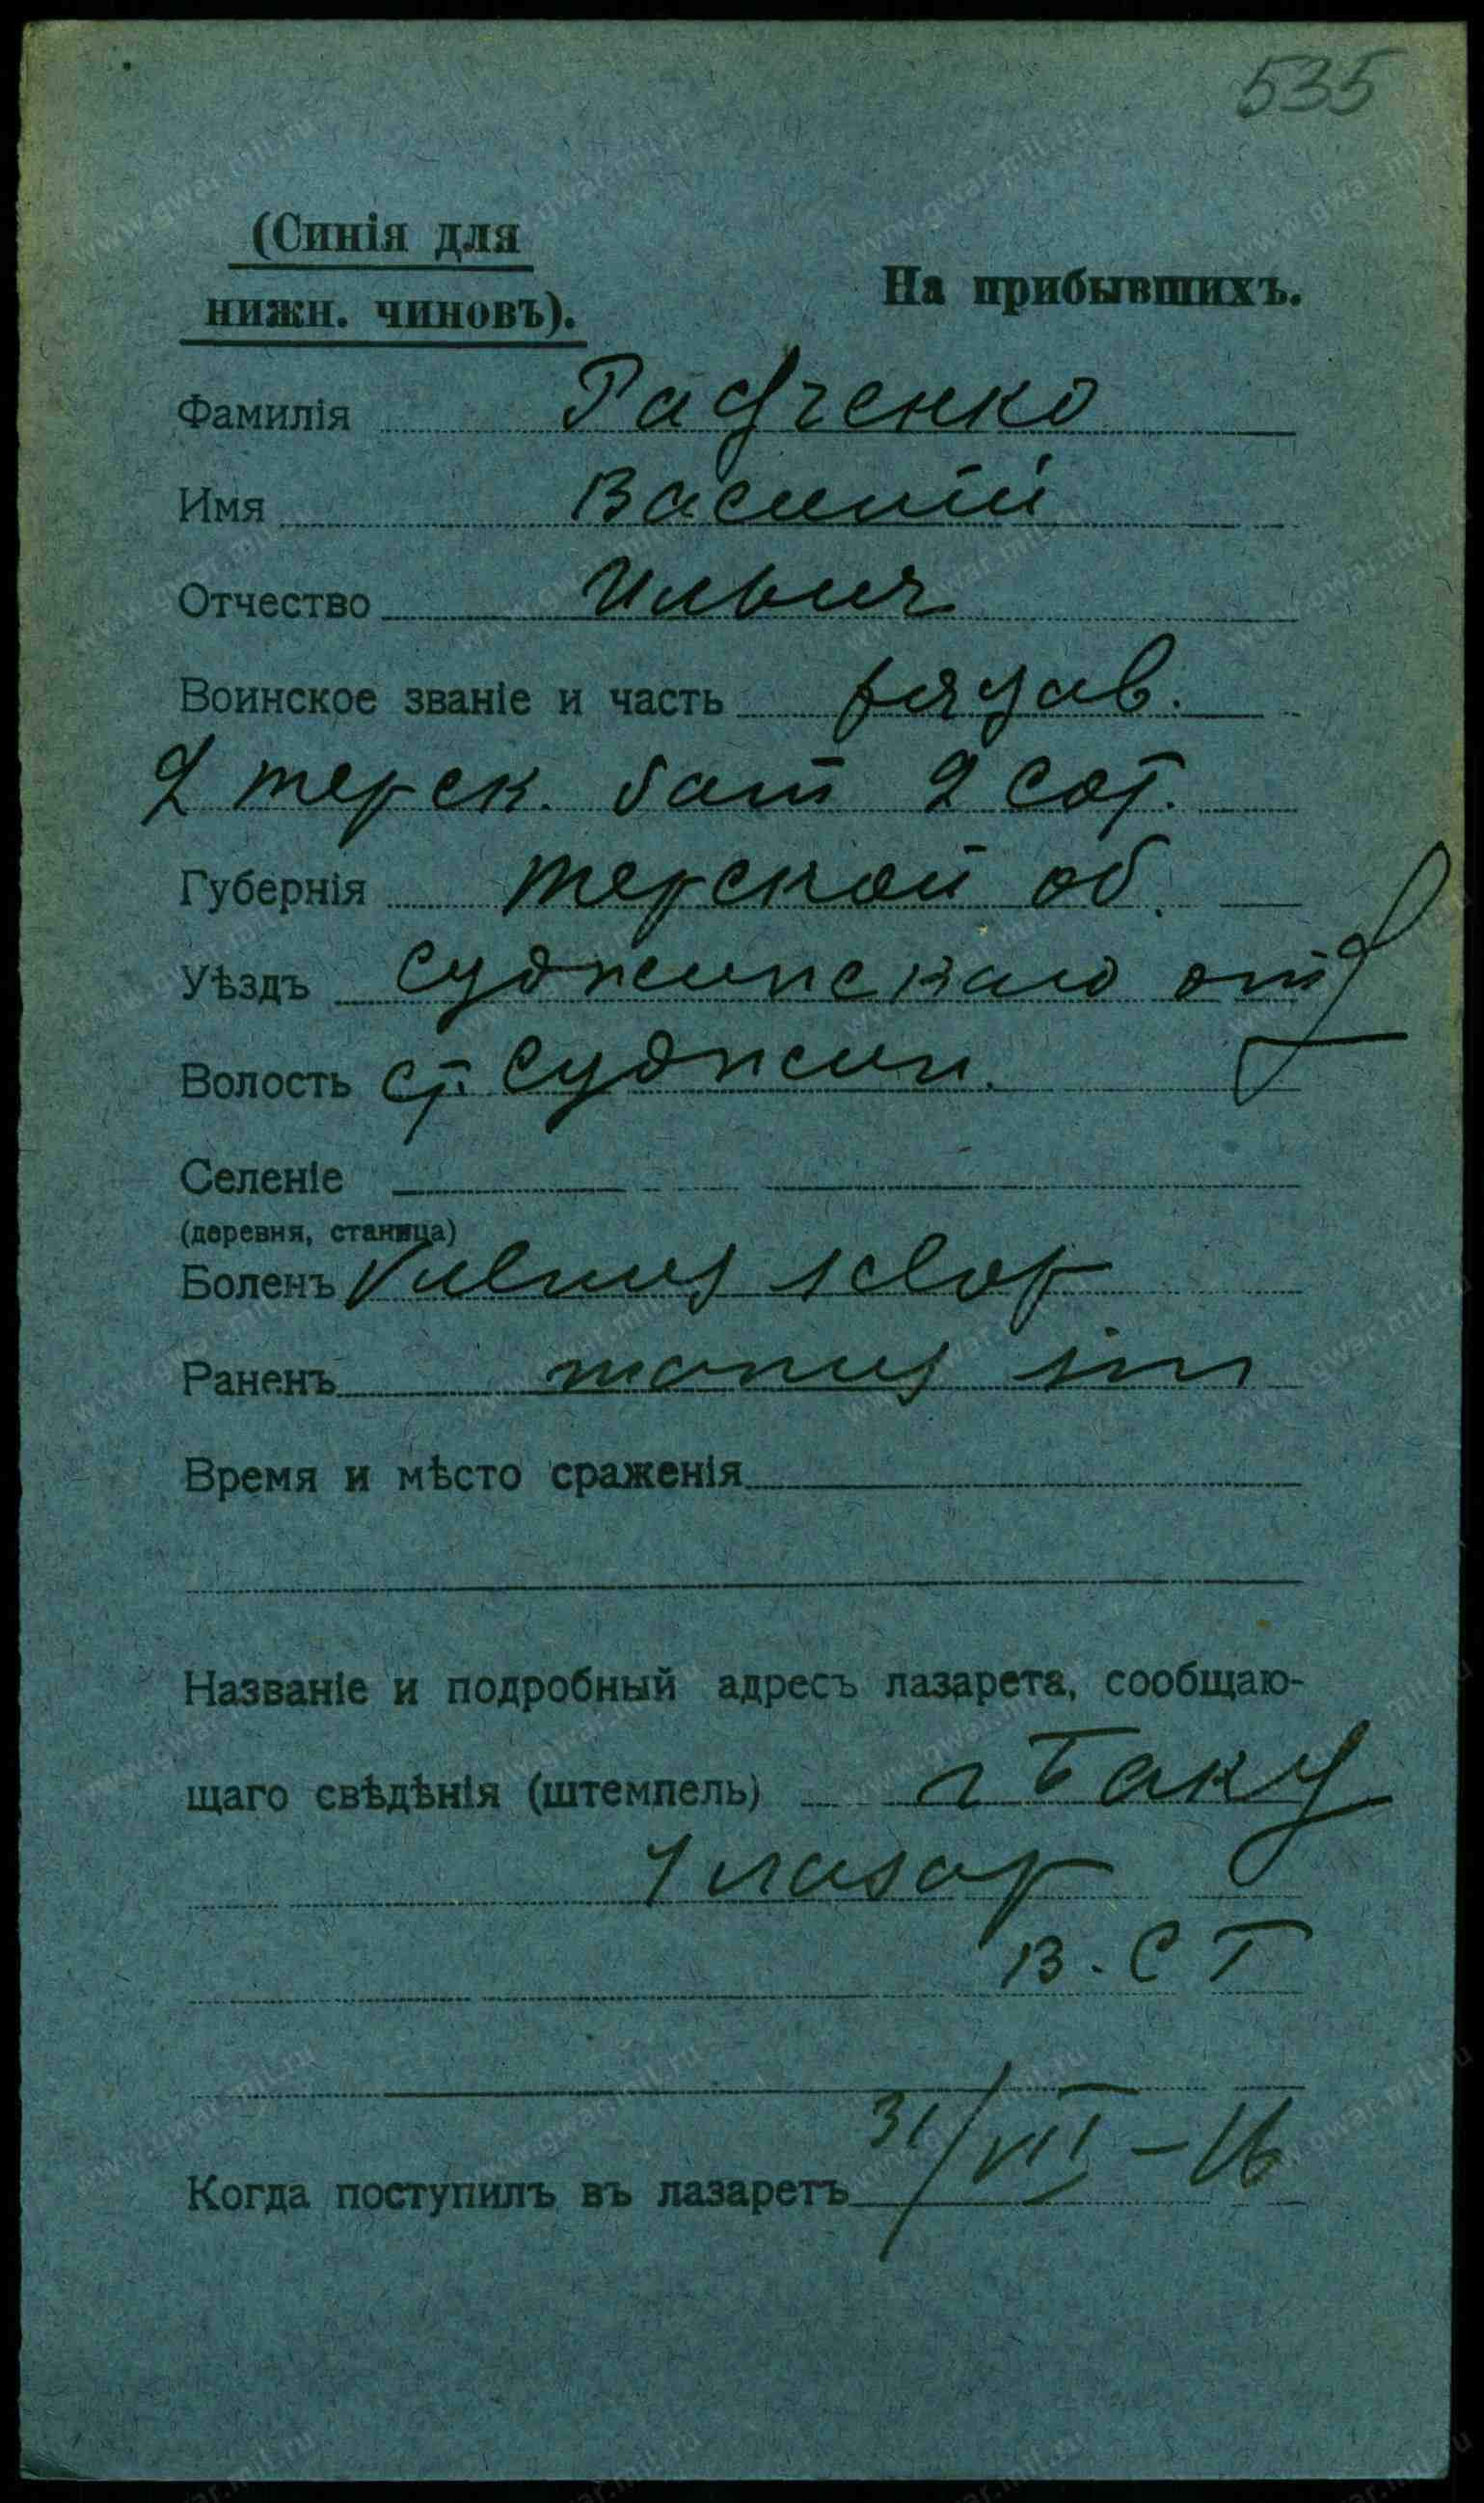 535
(Синія для
нижн. чиновъ).
На прибывшихъ.
Фамилія Радченко
Имя Василий
Отчество Ильич
Воинское званіе и часть рядав.
2 терск. бат 2 сот.
Губернія терской об.
Уѣздъ Суджинскаго отд
Волость ст. Суджин.
Селеніе
(деревня, станица)
Боленъ Vulnus sclop
Раненъ manus sin
Время и мѣсто сраженія
Названіе и подробный адресъ лазарета, сообщаю-
щаго свѣдѣнія (штемпель) г Баку
1 лазар
В. С Г
Когда поступилъ въ лазаретъ 31/VII – 16